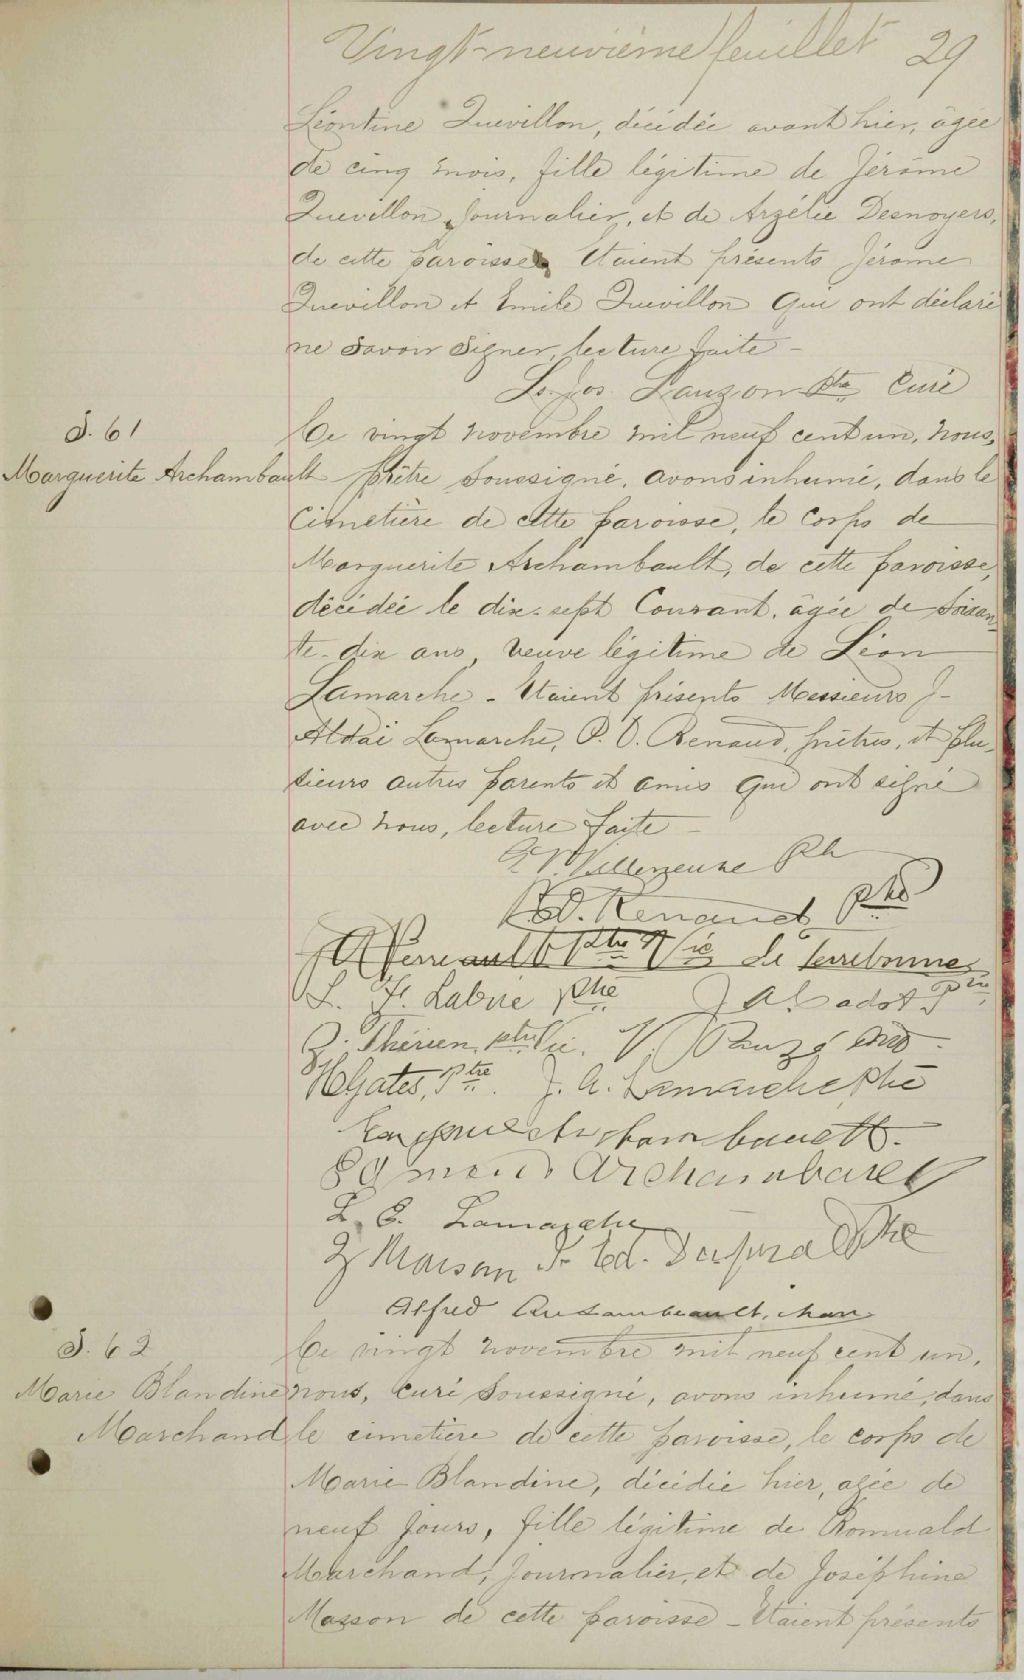 Vingt-neuvième feuillet 29
Léontine Quevillon, décédée avant hier, âgée
de cinq mois, fille légitime de Jérôme
Quevillon, journalier, et de Arzélie Desnoyers,
de cette paroisse. Etaient présents Jérôme
Quevillon et Emile Quevillon qui ont déclaré
ne savoir signer, lecture faite -
Ls. Jos. Lauzon ptre Curé
S. 61
Marguerite Archambault
Ce vingt novembre mil neuf cent un, nous,
prêtre soussigné, avons inhumé, dans le
cimetière de cette paroisse, le corps de
Marguerite Archambault, de cette paroisse,
décédée le dix-sept Courant, âgée de soixan-
te-dix ans, veuve légitime de Léon
Lamarche - Etaient présents Messieurs J-
Aldaï Lamarche, P. O. Renaud, prêtres, et plu-
sieurs autres parents et amis qui ont signé
avec nous, lecture faite -
Villeneuve
Renaud ptre
J A Perreault Ptre Vic de Terrebonne
L. F. Labrie ptre J A Cadot Ptre
Z. Thérien, ptre Vic. V. Pauzé
H Gates, Ptre. J. A. Lamarche Ptre
Eugène Archambault.
Edmond Archambault
L. E. Lamarche
Z Maison J- Ed. Dupras Ptre
Alfred Archambeault, chan
S. 62
Marie Blandine
Marchand
Ce vingt novembre mil neuf cent un,
nous, curé soussigné, avons inhumé, dans
le cimetière de cette paroisse, le corps de
Marie Blandine, décédée hier, agée de
neuf jours, fille légitime de Romuald
Marchand, journalier, et de Joséphine
Masson de cette paroisse - Etaient présents